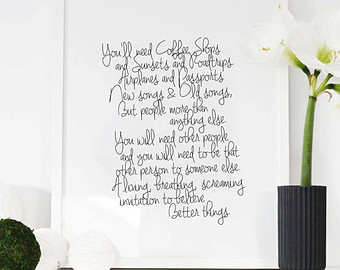 You'll need Coffee Shops
and Sunsets and Roadtrips
Airplanes and Passports
New songs & Old songs,
But people more than
anything else.
You will need other people
and you will need to be that
other person to someone else.
A living, breathing, screaming
invitation to believe
Better things